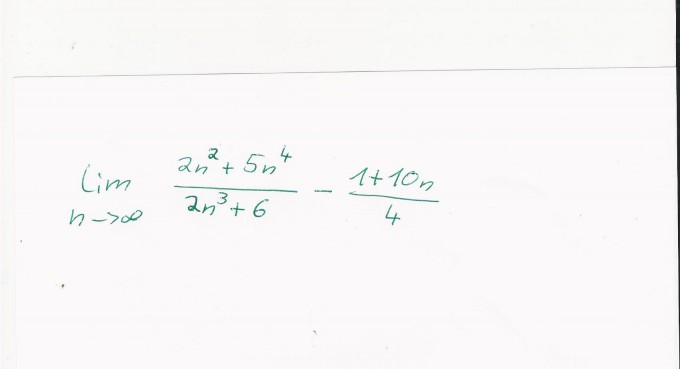 lim n->∞ (2n² + 5n⁴)/(2n³ + 6) - (1 + 10n)/4